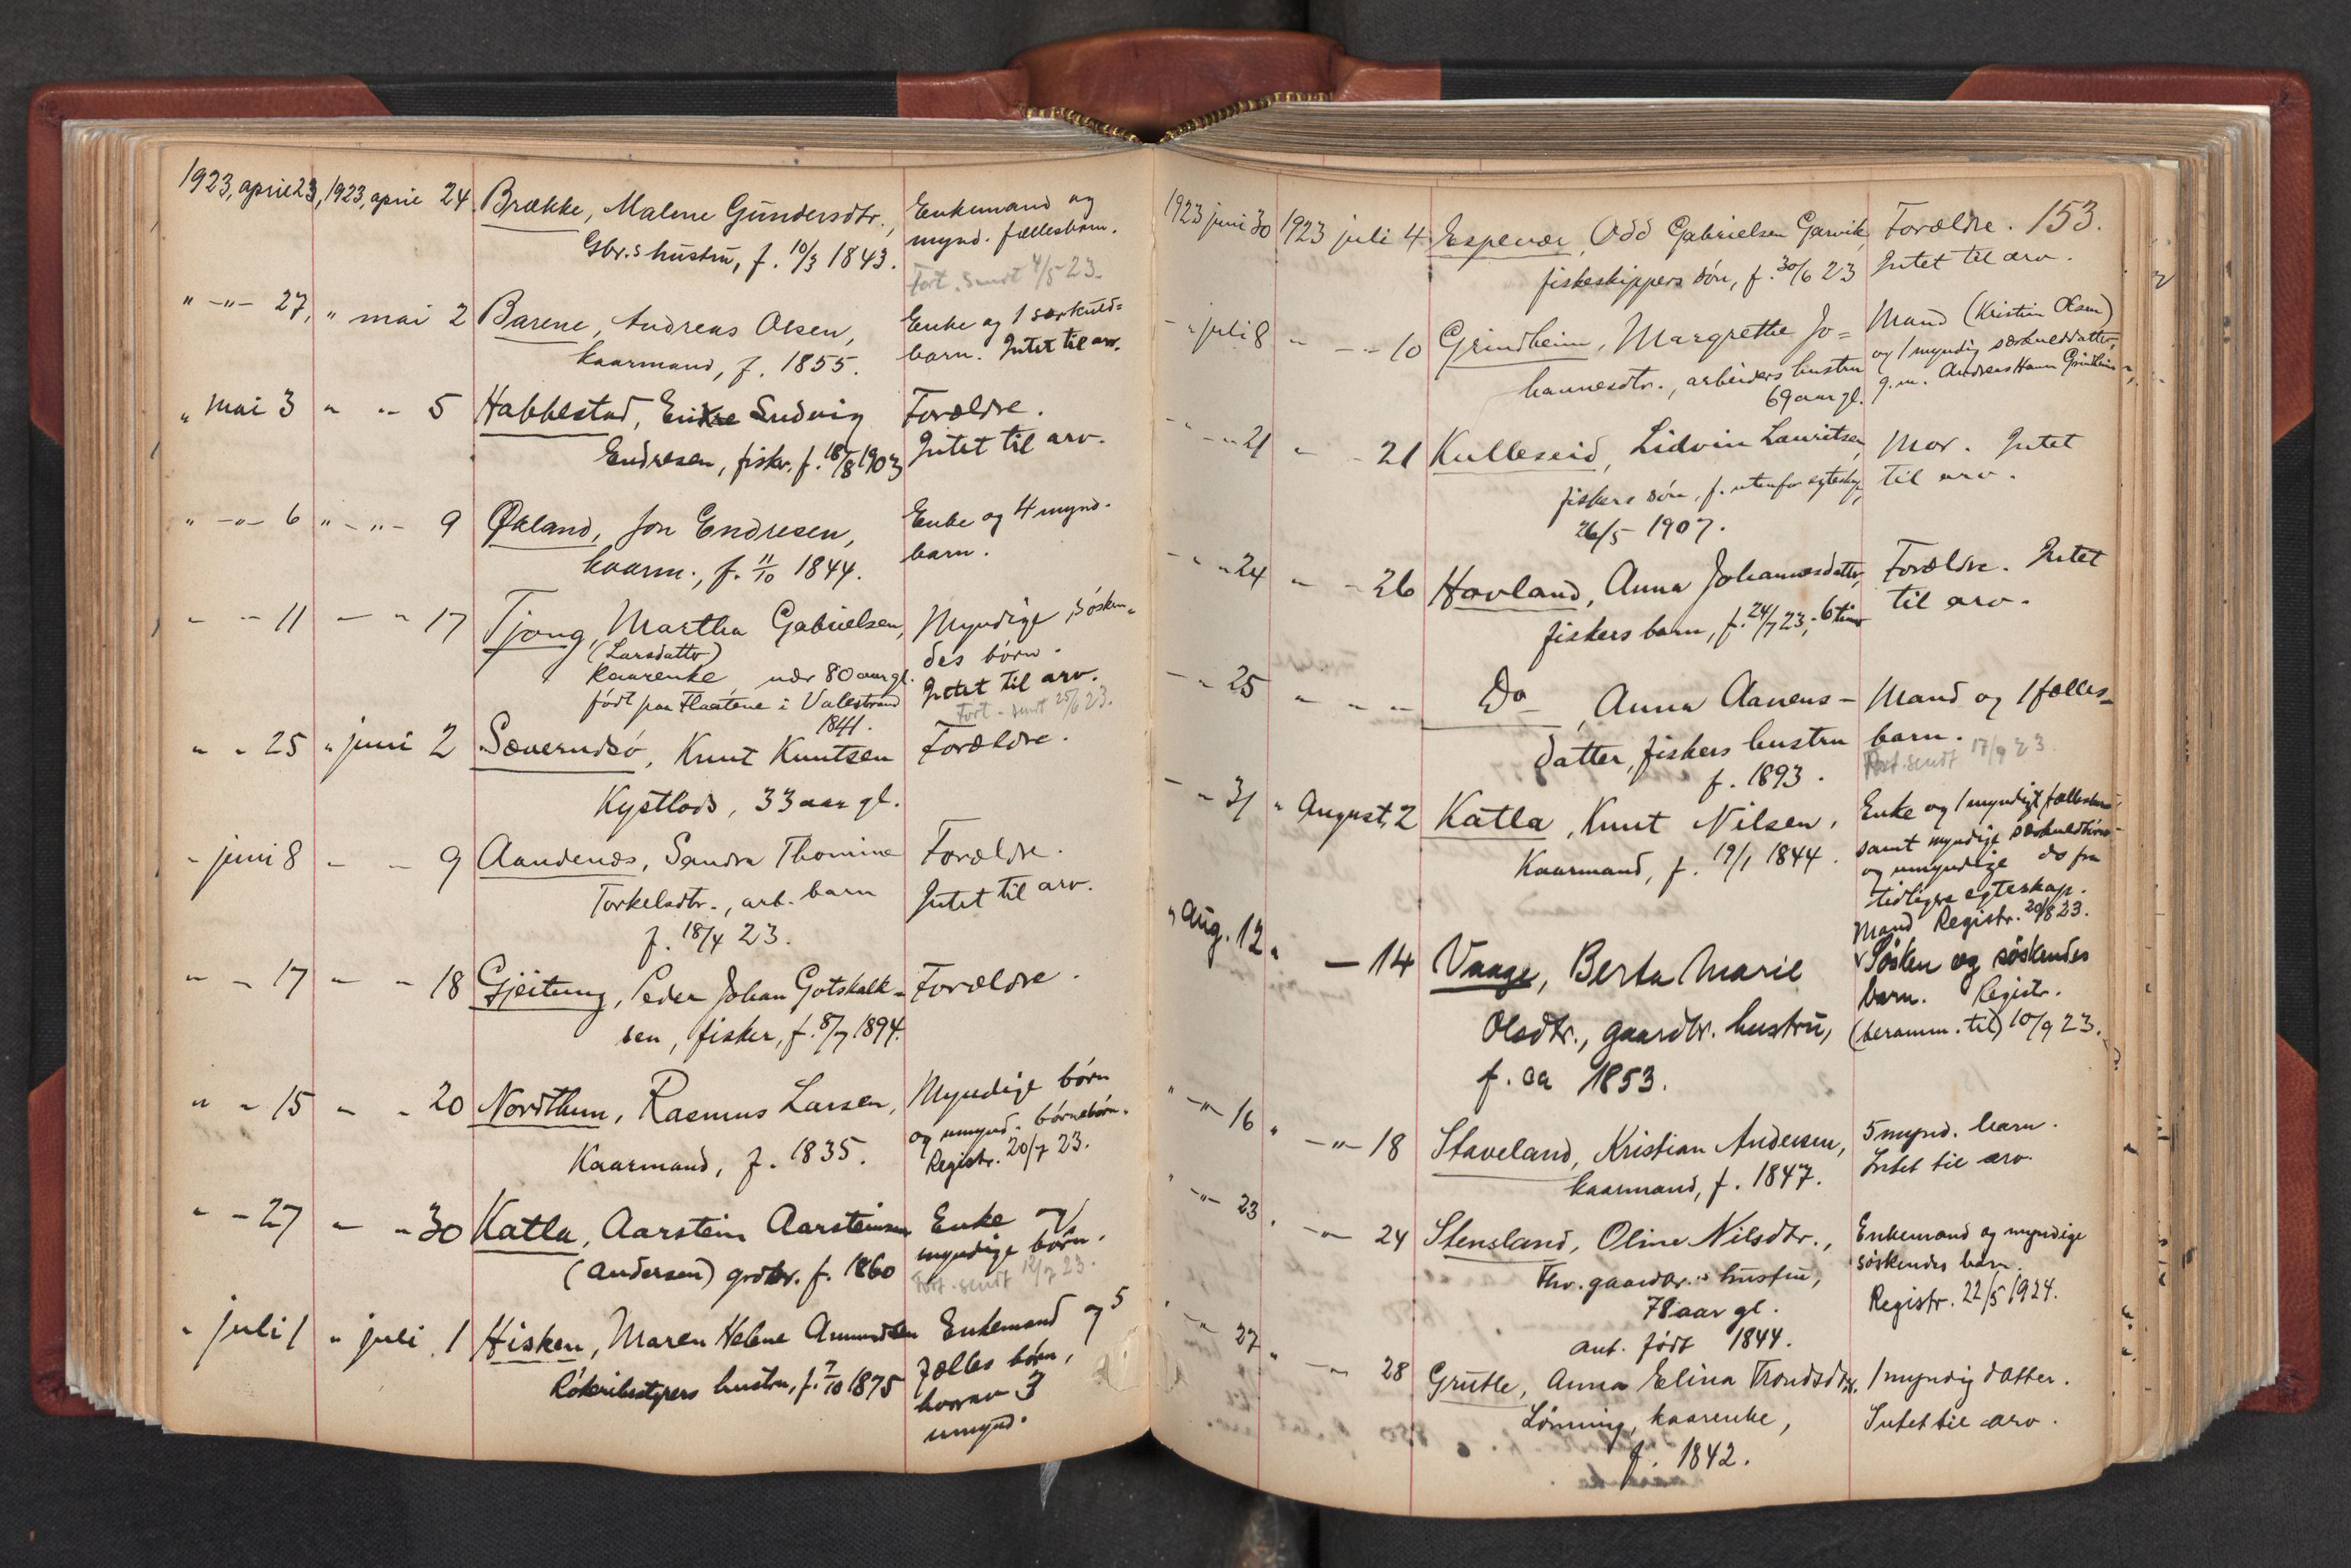 1923, april 23, 1923, april 24 Brække, Malene Gundersdtr., Enkemand og
Gbr.s hustru, f. 10/3 1843. mynd. fællesbarn.
Fort. sendt 4/5 23.
" -"- 27, " mai 2 Barene, Andreas Olsen, Enke og 1 særkuld=
kaarmand, f. 1855. barn. Intet til arv.
" mai 3 " -- 5 Habbestad, Endre Ludvig Forældre.
Endresen, fisker. f. 18/8 1903 Intet til arv.
" -"- 6 " -"- 9 Økland, Jon Endresen, Enke og 4 mynd.
kaarm., f. 11/10 1844. barn.
" -- 11 - " 17 Tjong, Martha Gabrielsen, Myndige søsken-
(Larsdatter) des børn.
kaarenke nær 80 aar gl. Intet til arv.
født paa Flaatene i Valestrand Fort. sendt 25/6 23.
1841.
" " 25 " juni 2 Sæverudsø, Knut Knutsen Forældre.
Kystlods, 33 aar gl.
" juni 8 - - 9 Aandenæs, Sandra Thomine Forældre.
Torkelsdtr., arb. barn Intet til arv.
f. 18/4 23.
" - 17 - " 18 Gjeitung, Peder Johan Gotskalk- Forældre.
sen, fisker, f. 8/7 1894.
" - 15 - - 20 Nordthun, Rasmus Larsen, Myndige børn
Kaarmand, f. 1835. og umynd. børnebørn.
Registr. 20/7 23.
" - 27 - - 30 Katla, Aarstein Aarsteinsen Enke og
(Andersen) grdbr. f. 1860 myndige børn.
Fort. sendt 12/7 23.
" juli 1 " juli 1 Hisken, Maren Helene Amundsen Enkemand og 5
f. 7/10 1875 fælles børn,
hvorav 3
umynd.
153.
1923 juni 30 1923 juli 4 Espevær, Odd Gabrielsen Garvik Forældre.
fiskeskippers søn, f. 30/6 23 Intet til arv.
- " juli 8 " - - 10 Grindheim, Margrethe Jo= Mand (Kristin Olsen)
hannesdtr., arbeiders hustru og 1 myndig særkulddatter,
69 aar gl. g.m. Andreas Hann Grindheim
- - - 21 " - 21 Kulleseid, Lidvin Lauritsen, Mor. Intet
fiskers søn, f. utenfor egteskap, til arv.
26/5 1907.
- - " 24 " - 26 Hovland, Anna Johannesdatter, Forældre. Intet
fiskers barn, f. 24/7 23, - 6 timer til arv.
- " 25 " - - Do , Anna Aanens- Mand og 1 fælles-
datter, fiskers hustru barn.
f. 1893. Fort. sendt 17/9 23
- " 31 " August, 2 Katla, Knut Nilsen, Enke og 1 myndigt fællesbarn
Kaarmand, f. 19/1 1844. samt myndige særkuldbørn
og umyndige do fra
tidligere egteskap.
Registr. 20/8 23.
" Aug. 12 " - 14 Vaage, Berta Marie Søsken og søskendes
Olsdtr., gaardbr. hustru, barn. Registr.
f. ca 1853. (beramm. til) 10/9 23.
" -"- 16 " -"- 18 Staveland, Kristian Andersen, 5 mynd. barn.
kaarmand, f. 1847. Intet til arv.
" -"- 23 " -"- 24 Stensland, Oline Nilsdtr., Enkemand og myndige
Fhv. gaardbr.s hustru, søskendes barn.
78 aar gl. Registr. 22/5 1924.
ant. født 1844.
" -"- 27 " -"- 28 Grutle, Anna Elina Trondsdtr. 1 myndig datter.
Lønning, kaarenke, Intet til arv.
f. 1842.